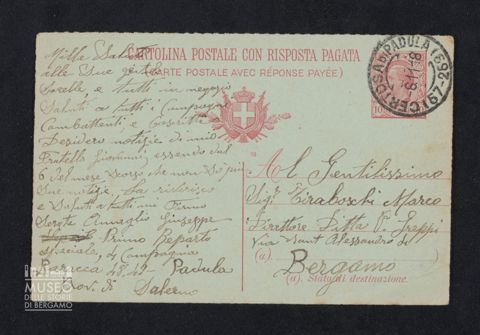 CARTOLINA POSTALE CON RISPOSTA PAGATA
(CARTE POSTALE AVEC RÉPONSE PAYÉE)
PADULA
Mille Saluti
alle Sue gentili
Sorelle, e tutti in negozio
Saluti a tutti i Compagni
Combattenti e
Desidero notizie di mio
Fratello Giovanni, essendo dal
6 del mese Scorso che non So più
Sue notizie, La riverisco
e Saluti a tutti mi Firmo
Giuseppe
Primo Reparto
Speciale, di Campagna
Baracca 48-49 Padula
Prov. di Salerno
Al Gentilissimo
Sig. Tiraboschi Marco
Direttore Ditta
Via Sant Alessandro
(a)
Bergamo
(a). Stato di destinazione.
MUSEO
DELLE STORIE
DI BERGAMO